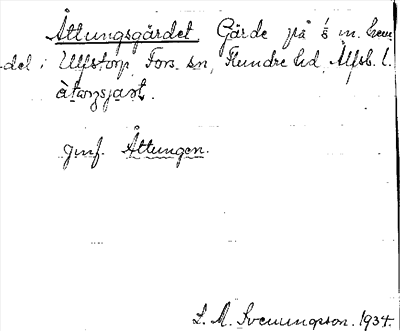 Åttungsgärdet. Gärde på s m. hem
del i Ulfstorp, Fors sn, Flundre hd, Älfsb. l.
àtoŋsjaṣt.
Jmf. Åttungen.
L. M. Svenungsson. 1934.